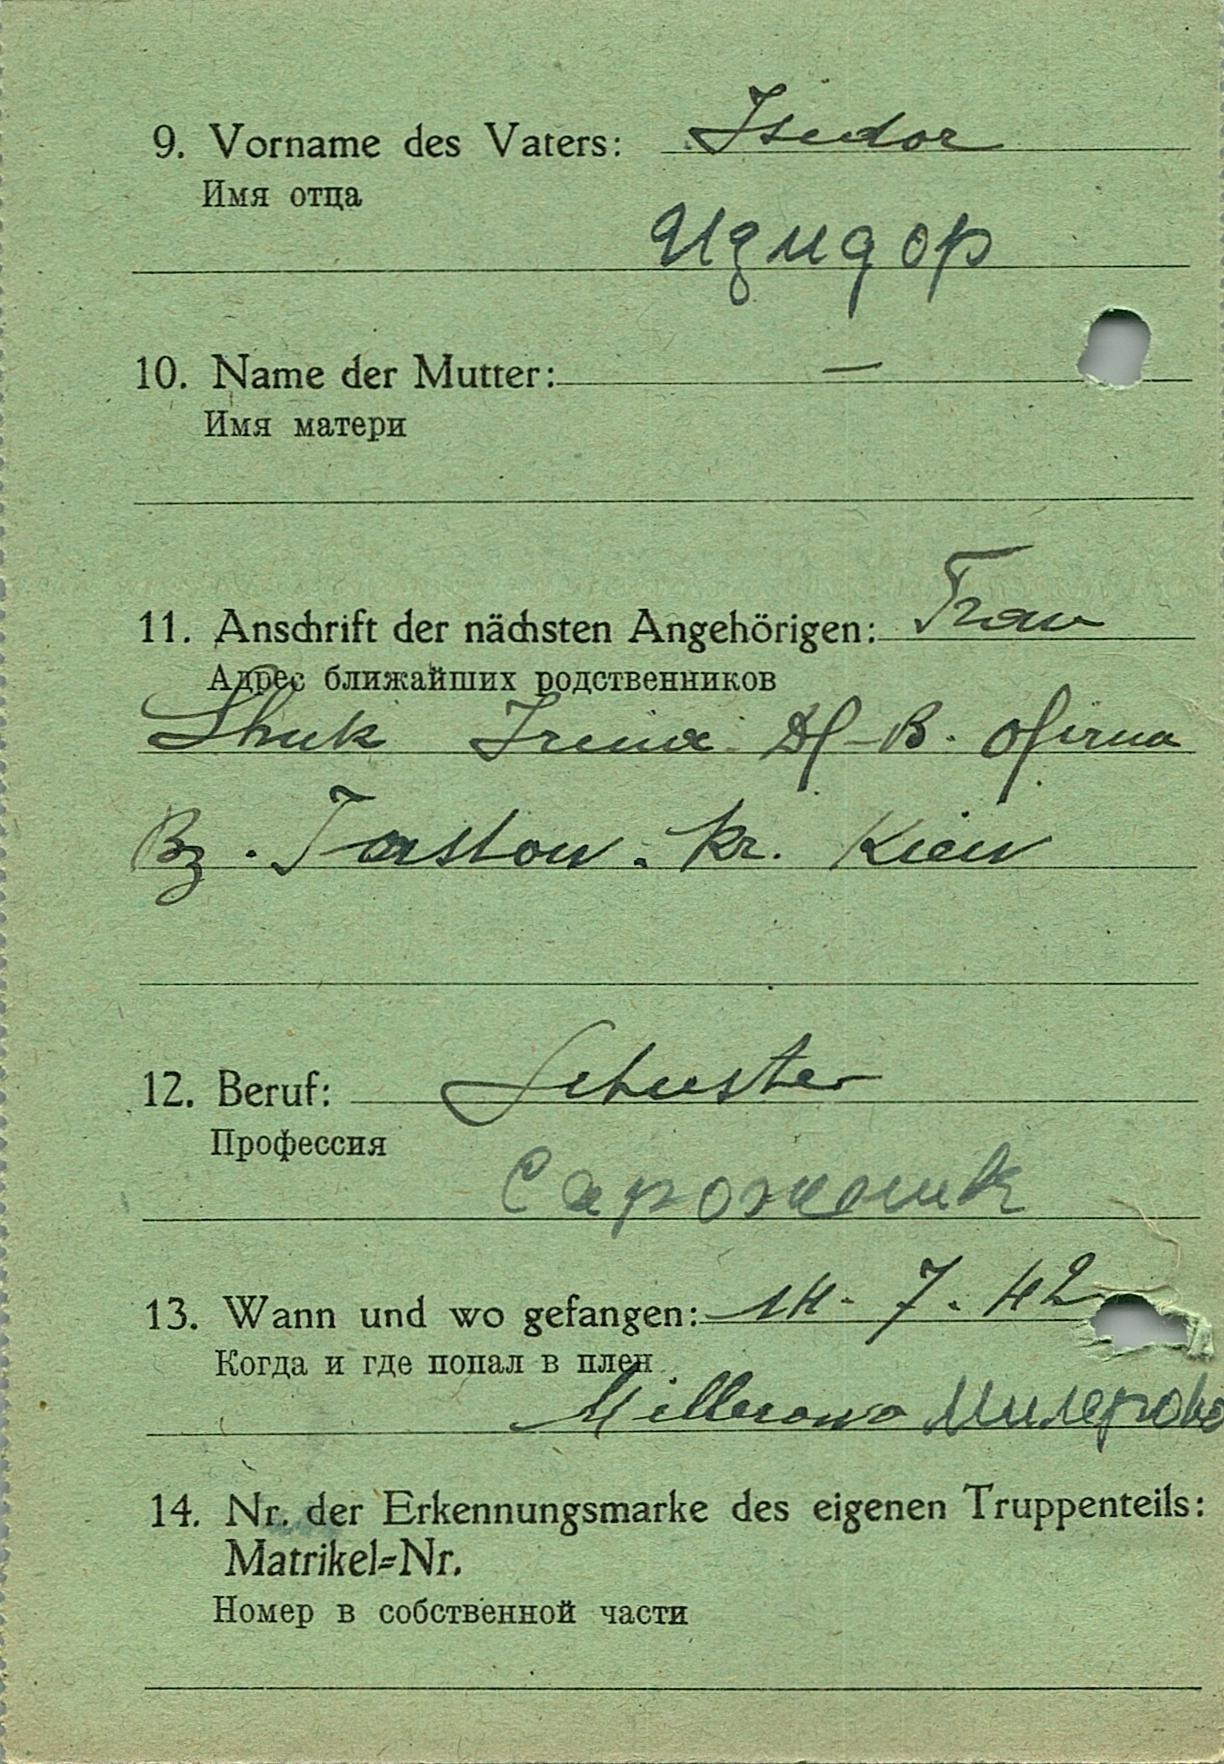 9. Vorname des Vaters: Isidor
Имя отца
Изидор
10. Name der Mutter: —
Имя матери
11. Anschrift der nächsten Angehörigen: Frau
Адрес ближайших родственников
Shuk Irina Df-B. Ofirna
Bz. Fastow. kr. Kiew
12. Beruf: Schuster
Профессия
Сапожник
13. Wann und wo gefangen: 14. 7. 42
Когда и где попал в плен
Millerowo Милерово
14. Nr. der Erkennungsmarke des eigenen Truppenteils:
Matrikel=Nr.
Номер в собственной части